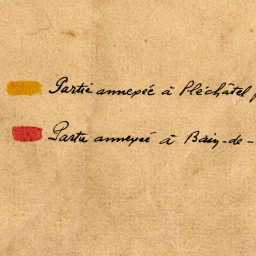 Partie annexée à Pléchâtel
Partie annexée à Bain-de-